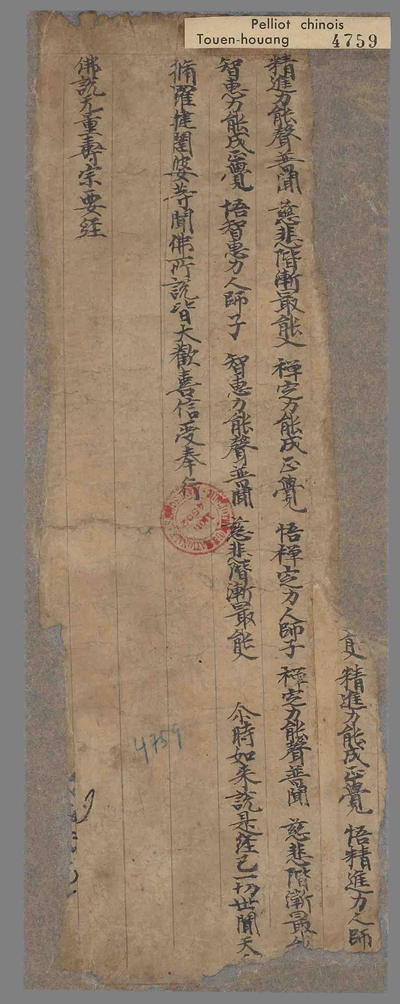 Pelliot chinois
Touen-houang 4759
精進力能成正覺 悟精進力人師
精進力能聲普聞 慈悲階漸最能入 禅定力能成正覺 悟禅定力人師子 禅定力能聲普聞 慈悲階漸最能
智惠力能成正覺 悟智惠力人師子 智惠力能聲普聞 慈悲階漸最能入 尒時如来說是經已一切世間天
脩羅揵闥婆等聞佛所說皆大歡喜信受奉行
佛說无量壽宗要經
4759